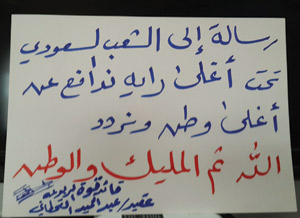 رسالة إلى الشعب لسعودي
تحت أغلى راية ندافع عن
أغلى وطن ونردد
الله ثم المليك والوطن
قائد قوة
عقيد/عبدالمجيد القحطاني